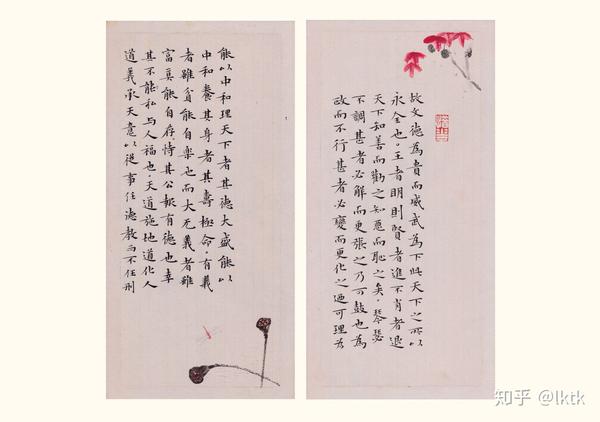 故文德為貴而威武為下此天下之所以
永全也。王者明則賢者進不肖者退
天下知善而勸之知惡而恥之矣。琴瑟
不調甚者必解而更張之乃可鼓也為
政而不行甚者必變而更化之迺可理
能以中和理天下者其德大盛能以
中和養其身者其壽極命。有義
者雖貧能自樂也而大无義者雖
富莫能自存恃其公報有德也幸
其不能私与人福也。天道施地道化人
道義承天意以從事任德教而不任刑
知乎 @lktk